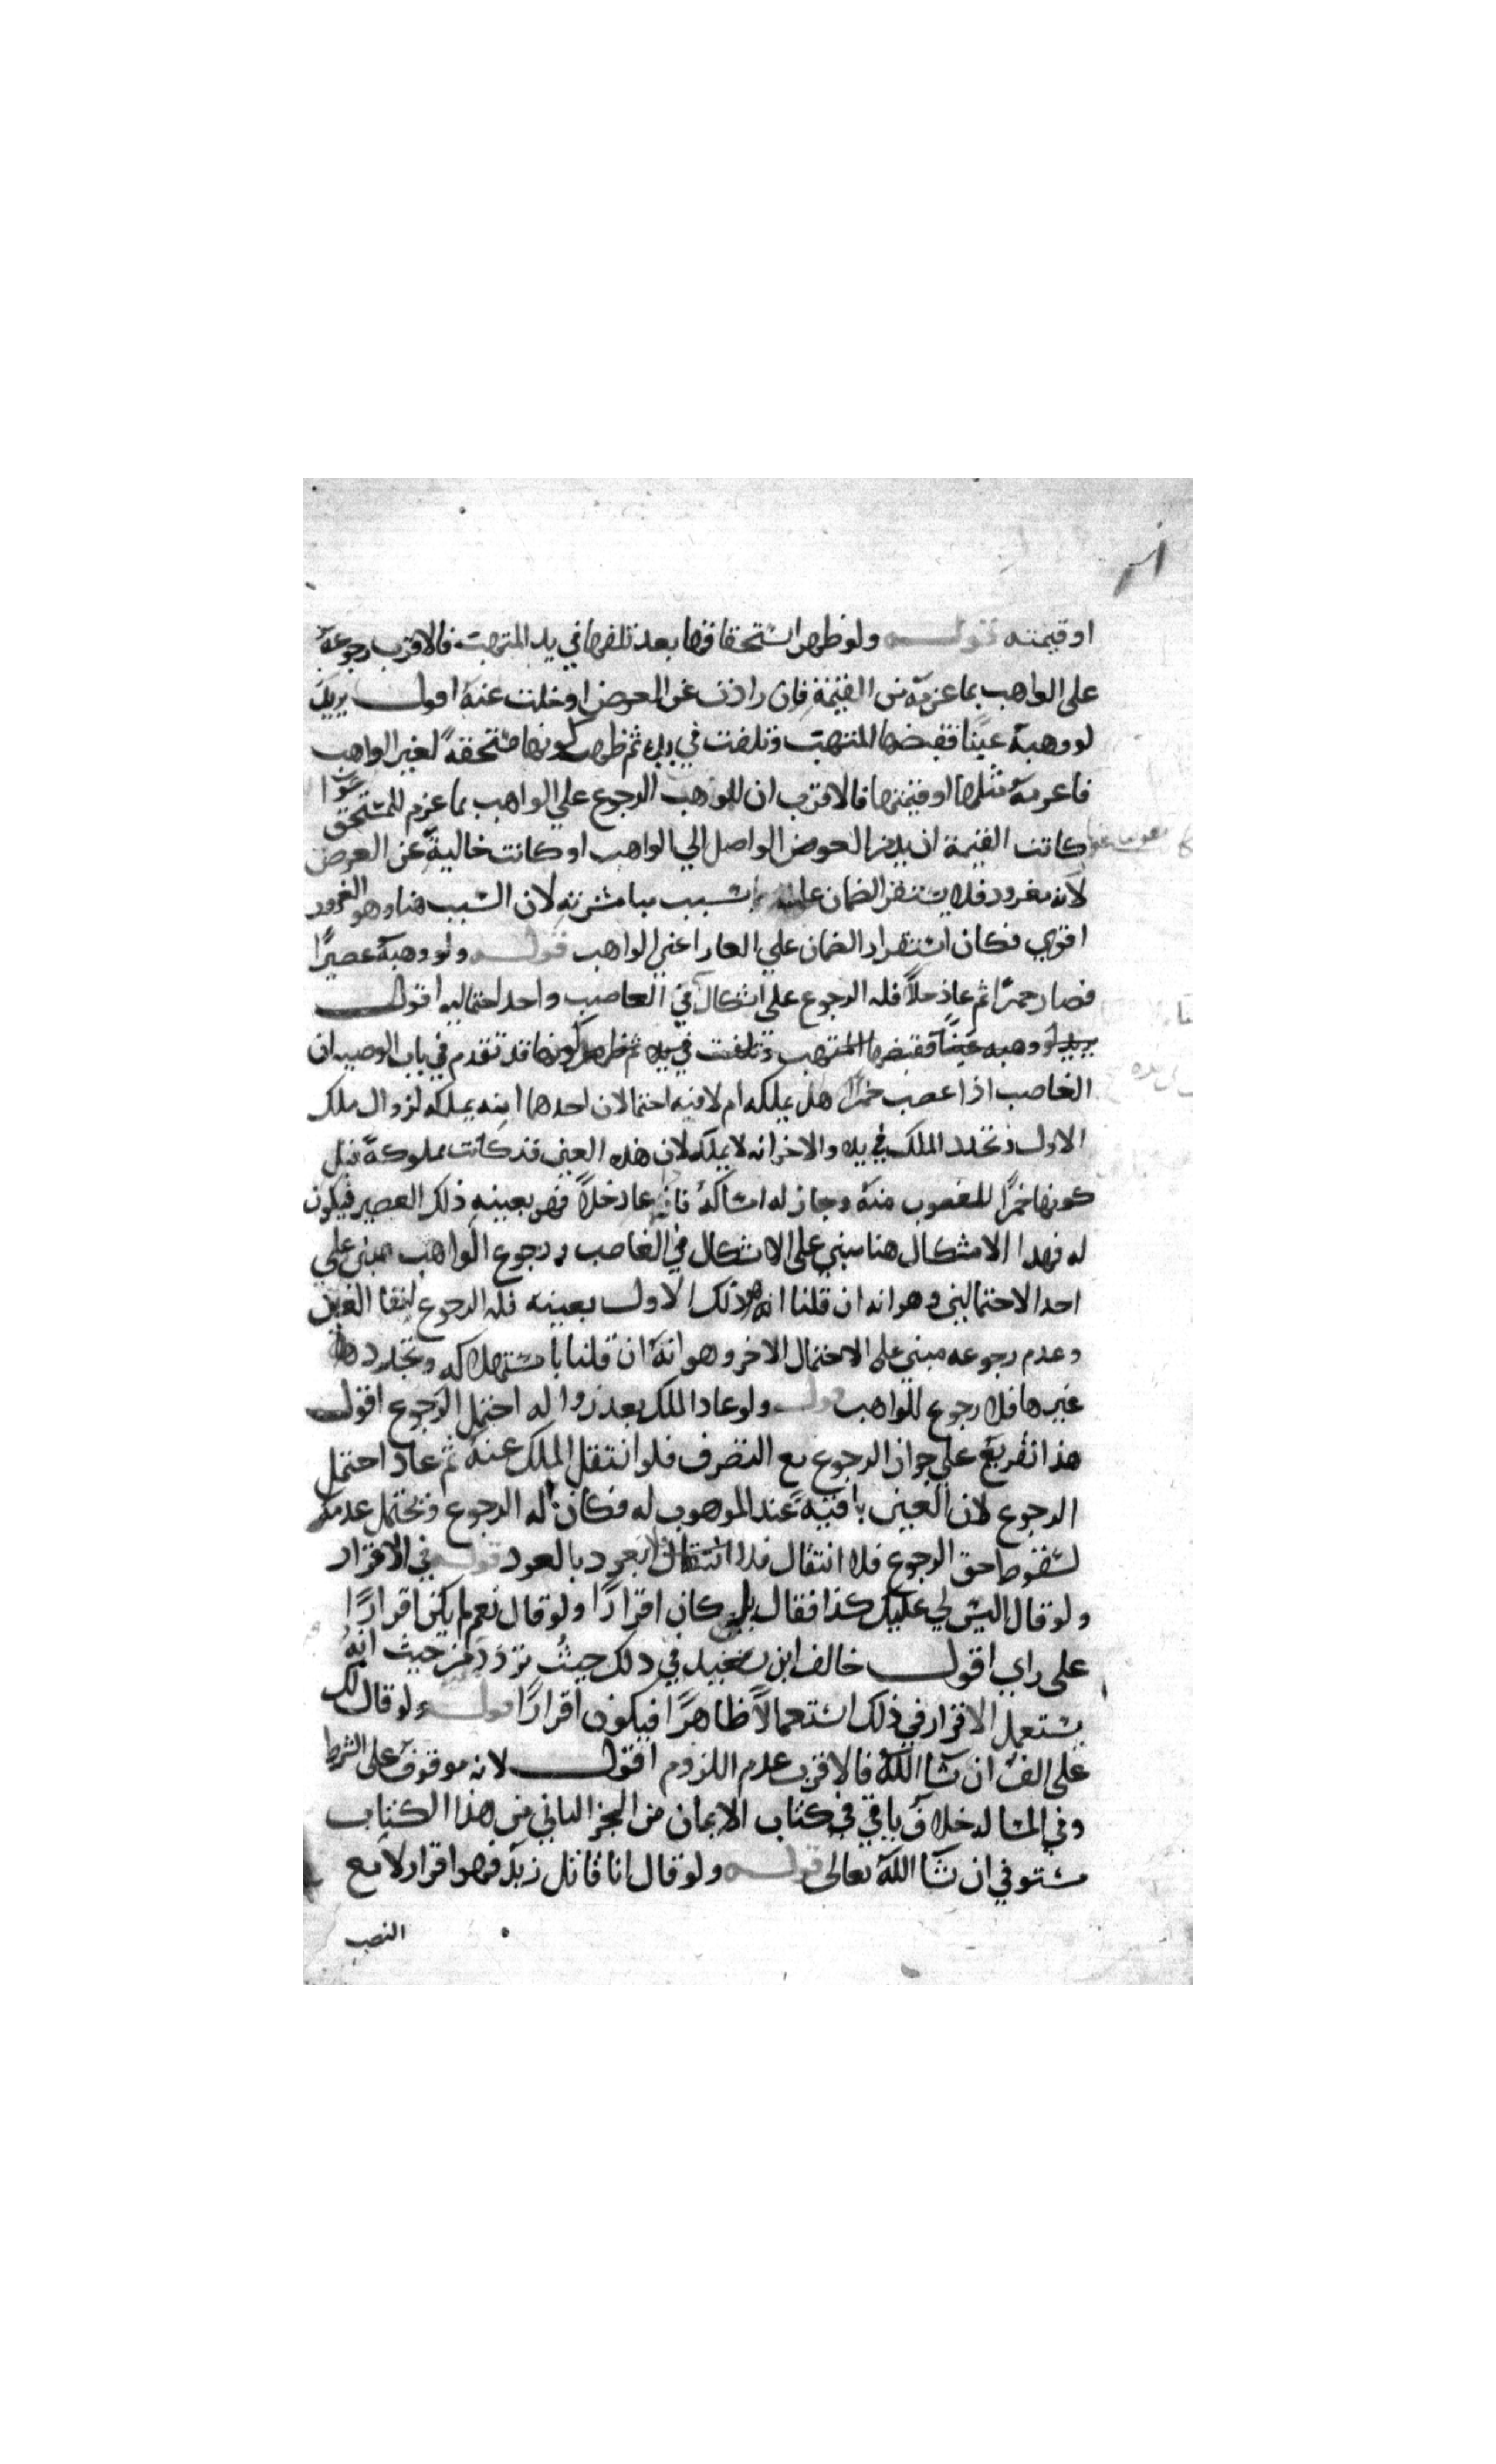 او قيمته قوله ولو ظهر استحقاقها بعد تلفها في يد المتهب فالاقرب رجوعه
على الواهب بما غرمه من القيمة فان زادت عن العوض او خلت عنه اقول يريد
لو وهبه عينا فقبضها المتهب وتلفت في يده ثم ظهر كونها مستحقة لغير الواهب
فاغرمه مثلها او قيمتها فالاقرب ان للموهب الرجوع على الواهب بما غرم للمستحق سوا
كانت القيمة ازيد من العوض الواصل الي الواهب او كانت خالية عن العوض
لانه مغرور فلا يستقر الضمان عليه بسبب مباشرته لان السبب هنا وهو الغرور
اقوي فكان استقرار الضمان علي الغار اعني الواهب قوله ولو وهبه عصيرا
فصار خمرا ثم عاد خلا فله الرجوع على اشكال في الغاصب واحد احتماليه اقول
يريد لو وهبه عينا فقبضها المتهب وتلفت في يده ثم ظهر كونها قد تقدم في باب الوصيه ان
الغاصب اذا غصب خمرا هل يملكه ام لا فيه احتمالان احدهما انه يملكه لزوال ملك
الاول وتجدد الملك في يده والاخر انه لا يملكه لان هذه العين قد كانت مملوكة قبل
كونها خمرا للمغصوب منه وجاز له امساكه فانه عاد خلا فهو بعينه ذلك العصير فيكون
له فهدا الاشكال هنا مبني على الاشكال في الغاصب و رجوع الواهب مبنى علي
احد الاحتمالين وهو انه ان قلنا انه هو ذلك الاول بعينه فله الرجوع لبقا العين
وعدم رجوعه مبني على الاحتمال الاخر وهو انه ان قلنا باستهلاكه وتجدد
غيرها فلا رجوع للواهب قوله ولو عاد الملك بعد زواله احتمل الرجوع اقول
هذا تفريع علي جواز الرجوع مع التصرف فلو انتقل الملك عنه ثم عاد احتمل
الرجوع لان العين باقية عند الموهوب له فكان له الرجوع ويحتمل عدمه
لسقوط حق الرجوع فلا انتقال فلا يعود بالعود قوله في الاقرار
ولو قال اليس لي عليك كذا فقال بلي كان اقرارا ولو قال نعم لم يكن اقرارا
على راي اقول خالف ابن سعيد في ذلك حيث تردد من حيث انه
يستعمل الاقرار في ذلك استعمالا ظاهرا فيكون اقرارا قوله ولو قال لك
على الف ان شا الله فالاقرب عدم اللزوم اقول لانه موقوف على الشرط
وفي المسالة خلاف ياتي في كتاب الايمان من الجز الثاني من هذا الكتاب
مستوفي ان شا الله تعالى قوله ولو قال انا قاتل زيد فهو اقرار لا مع
النصب